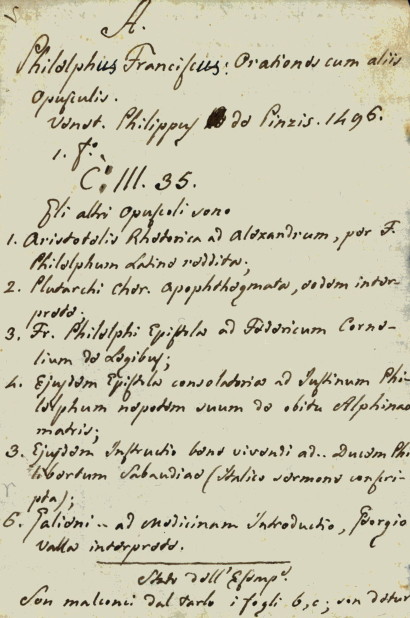 A.
Philelphus Franciscus: Orationes cum aliis
Opusculis.
Venet. Philippus de Pinzis. 1496.
1. fo.
C. III. 35.
Gli altri Opuscoli sono
1. Aristotelis Rhetorica ad Alexandrum, per F.
Philelphum Latine reddita;
2. Plutarchi Cher. Apophthegmata, eodem inter-
prete.
3. Fr. Philelphi Epistola ad Federicum Corne-
lium de Legibus;
4. Ejusdem Epistola consolatoria ad Justinum Phi-
lelphum nepotem suum de obitu Alphinae
matris;
5. Ejusdem Instructio bene vivendi ad.. Ducem Phi-
libertum Sabaudiae (Italico sermone conscri-
pta);
6. Galieni.. ad Medicinam Introductio, Georgio
Valla interprete.
Stato dell'Esemp.e
Son malconci dal tarlo i fogli b, c; son detur